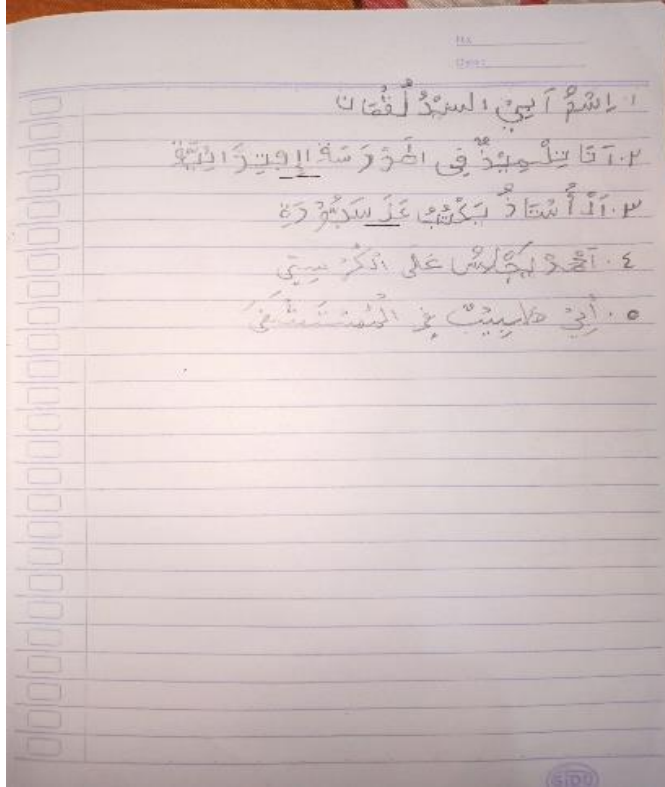 No.
Date:
١ اِسْمُ أَبِيْ السيْدُ لُقْمَان
٢. اَنَا تِلْمِيْذٌ فِى المَدْرَسَةْ الإِبتِدَائِيَّة
٣. اَلْأُسْتَاذُ يَكْتُبُ عَلَ سَبُّوْرَة
٤. اَحْمَدْ يَجْلِسُ عَلَى الكُرْسِيّ
٥. أَبِيْ طَبِيْبٌ فِي المُسْتَشْفَى
SIDU